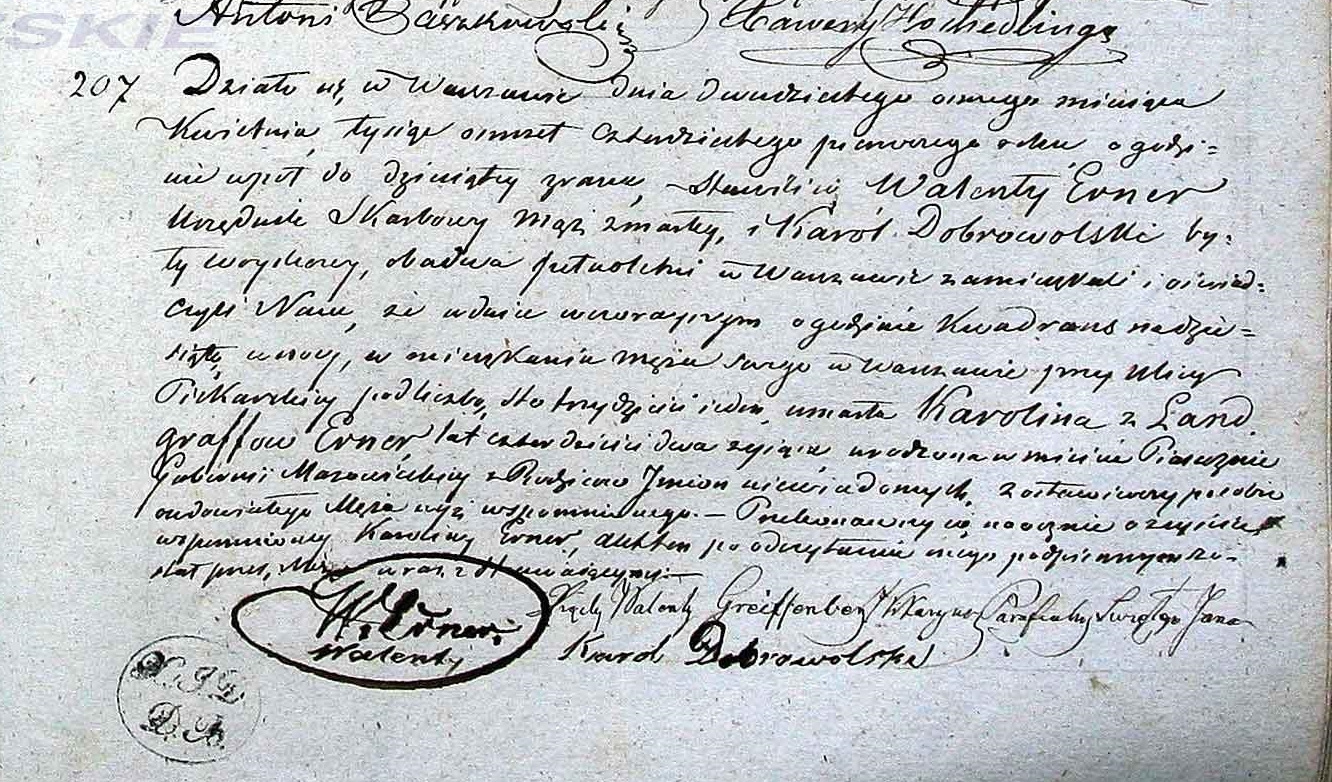 SKIE
Antoni Baszkowski Xawery Hochedlinger
207 Działo się w Warszawie dnia dwudziestego osmego miesiąca
Kwietnia, tysiąc osmset czterdziestego pierwszego roku, o godzi=
nie wpół do dziesiątey zrana, Stawili się Walenty Erner
Urzędnik Skarbowy Mąż zmarłey, i Karól Dobrowolski by=
ły woyskowy, obadwa pełnoletni w Warszawie zamieszkali i oświad=
czyli Nam, że w dniu wczorayszym o godzinie Kwadrans na dzie=
siątą w nocy, w mieszkaniu męża swego w Warszawie przy Ulicy
Piekarskiey pod liczbą sto trzydzieści ieden, umarła Karolina z Land
graffow Erner, lat czterdzieści dwa żyiąca urodzona w mieście Piasecznie
Gubernii Mazowieckiey z Rodziców Imion niewiadomych, Zostawiwszy po sobie
owdowiałego Męża wyż wspomnionego. — Przekonawszy się naocznie o zeyściu
wspomnioney Karoliny Erner, Akt ten po odczytaniu onego podpisany zo=
stał przez Męża wraz z
Xiądz Walenty Greiffenberg Wikaryusz Parafialny Świętego Jana
W. Erner
Walenty
Karol Dobrowolski
D. A.